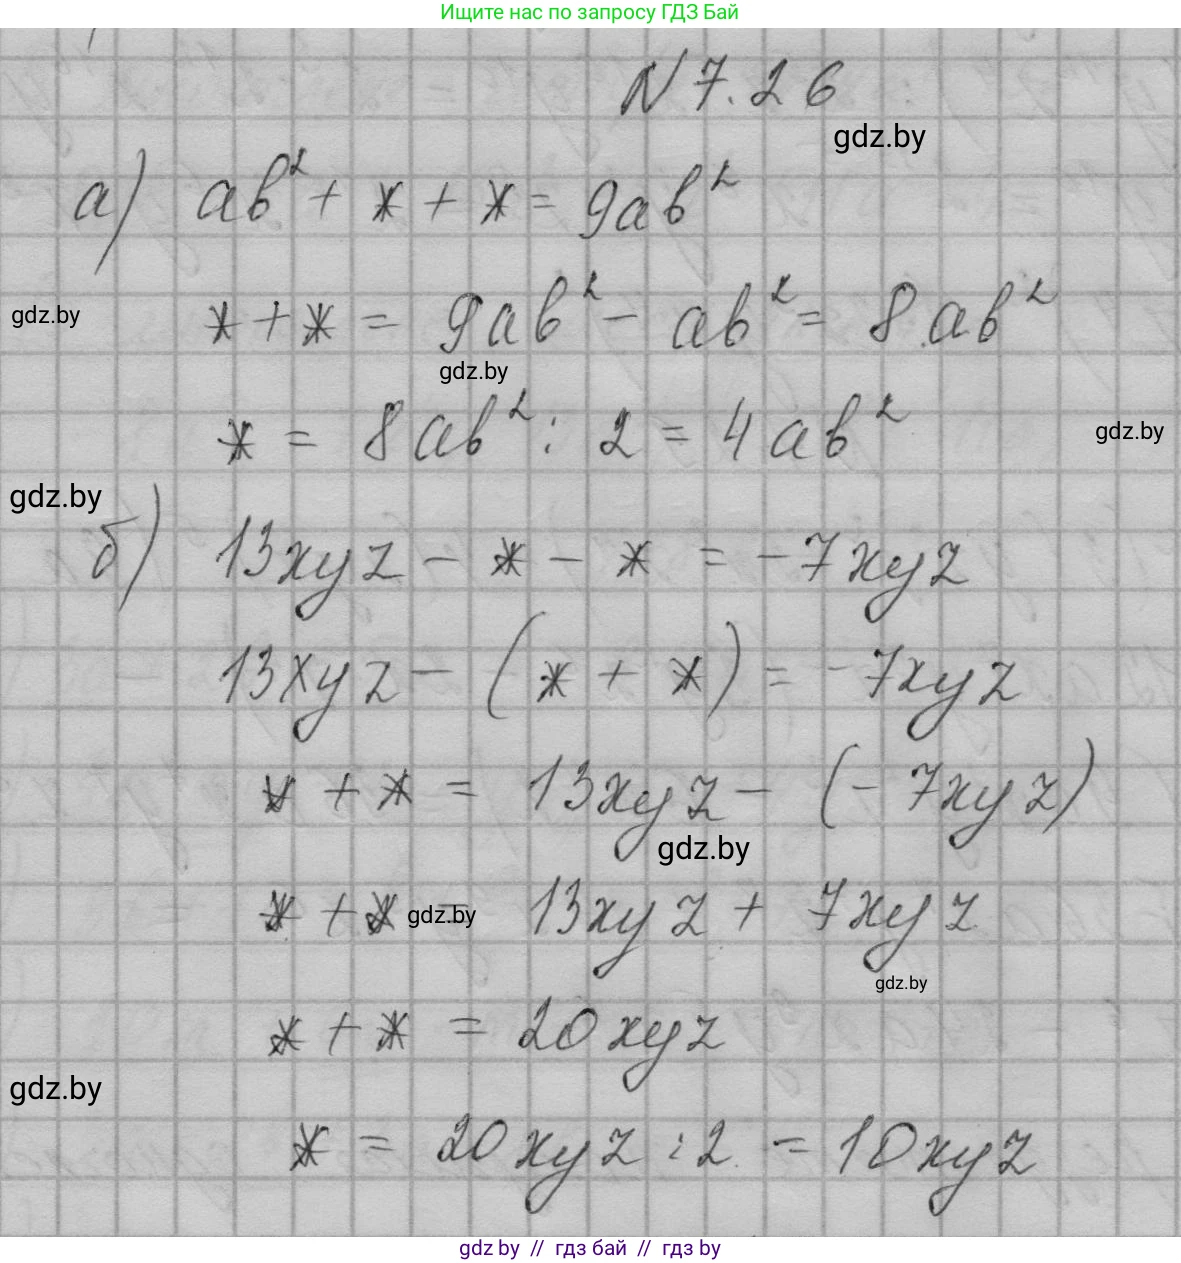 Ищите нас по запросу ГДЗ Бай
N 7.26
gdz.by
а) ab² + * + * = 9ab²
gdz.by
* + * = 9ab² - ab² = 8ab²
gdz.by
* = 8ab² : 2 = 4ab²
gdz.by
gdz.by
б) 13xyz - * - * = -7xyz
13xyz - (* + *) = -7xyz
* + * = 13xyz - (-7xyz)
gdz.by
* + * = 13xyz + 7xyz
gdz.by
gdz.by
* + * = 20xyz
gdz.by
* = 20xyz : 2 = 10xyz
gdz by // гдз бай // гдз by